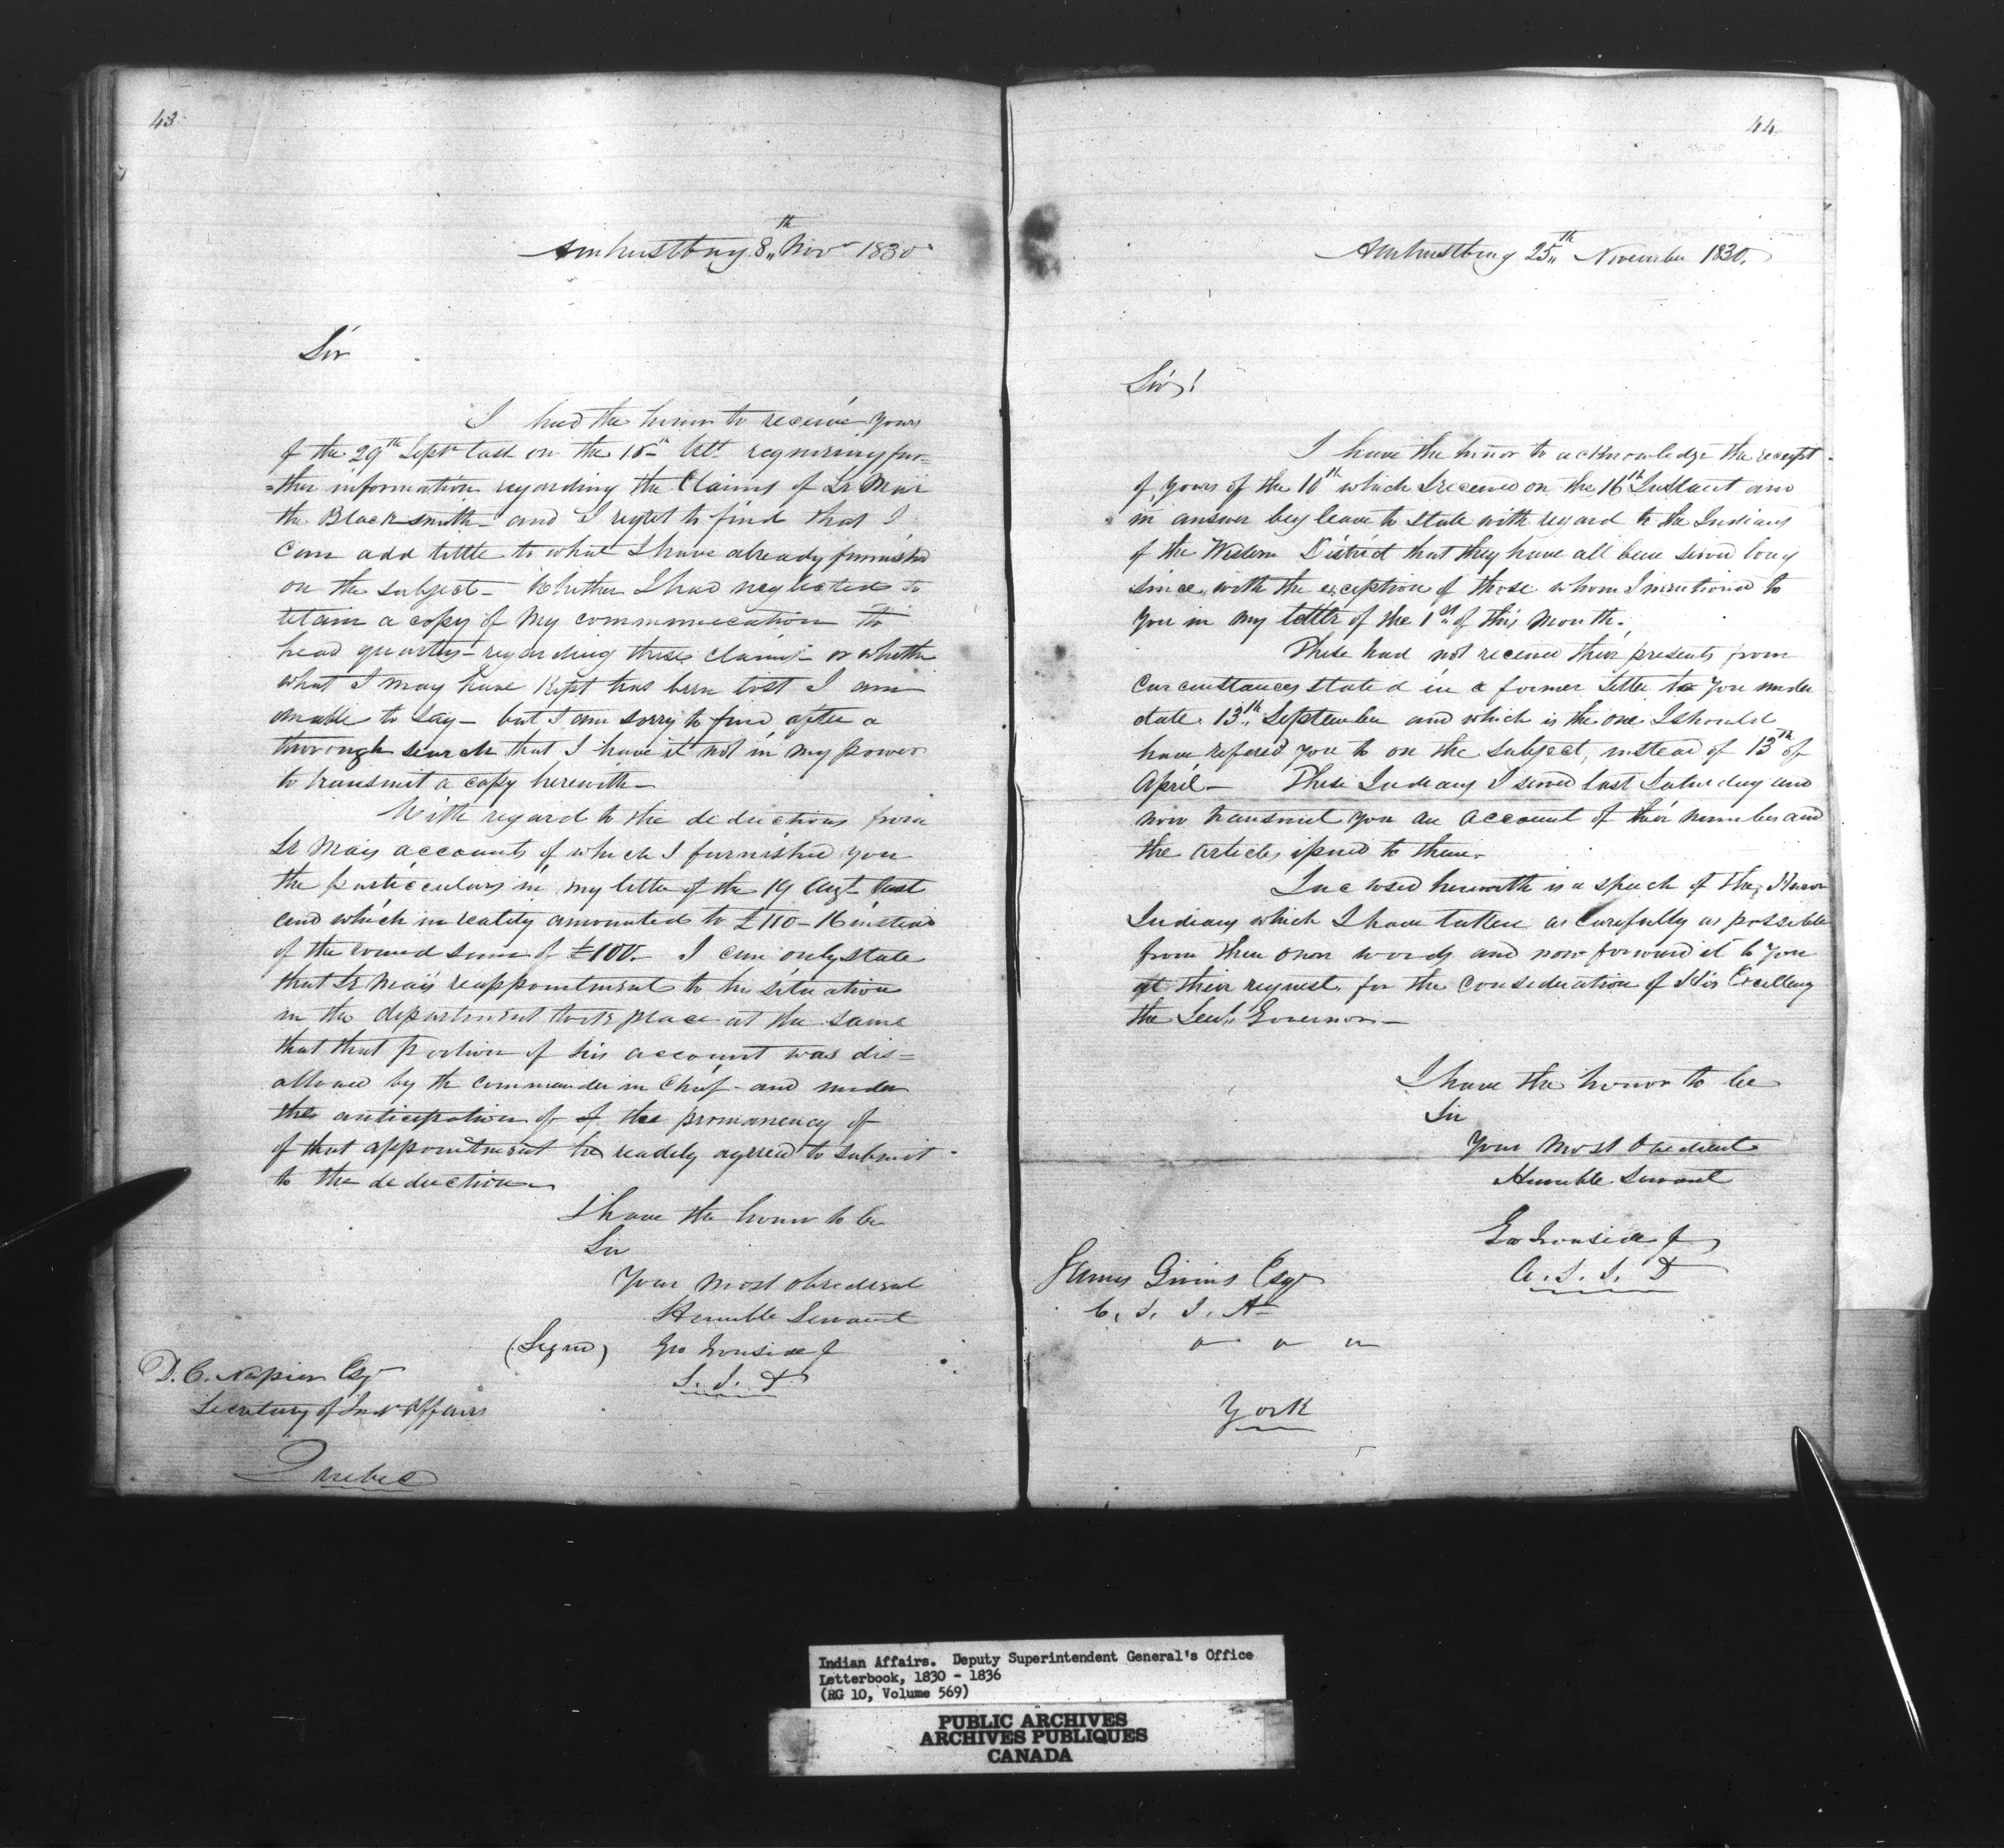 43
Amherstburg 8th Novr 1830
Sir
I had the honor to receive yours
of the 29th Septr last on the 15th Ult. requiring fur=
=ther information regarding the Claims of Le May
the Blacksmith - and I regret to find that I
can add little to what I have already furnished
on the subject - Whether I had neglected to
retain a copy of my communication to
head quarters - regarding these claims - or whether
what I may have kept has been lost I am
unable to say - but I am sorry to find after a
thorough search that I have it not in my power
to transmit a copy herewith -
With regard to the deductions from
Le Mays accounts of which I furnished you
the particulars in my letter of the 19 Augt last
and which in reality amounted to £110-16 instead
of the round sum of £100. - I can only state
that Le May's reappointment to his situation
in the department took place at the same
that that portion of his account was dis=
allowed by the commander in Chief - and under
the anticipation of of the promanency of
of that appointment he readily agreed to submit
to the deduction -
I have the honor to be
Sir
Your most obedient
Humble Servant
(Signd) Geo Ironside J
S. I. D
D. C. Napier Esqr
Secretary of Indn Affairs
Quebec
44
Amherstburg 25th November 1830.
Sir!
I have the honor to acknowledge the receipt
of yours of the 10th which I received on the 16th Instant and
in answer beg leave to state with regard to the Indians
of the Western District that they have all been served long
since with the exception of those whom I mentioned to
you in my letter of the 1st of this month.
These had not received their presents from
circumstances stated in a former letter to you under
date 13th September and which is the one I should
have refered you to on the subject, instead of 13th of
April - These Indians I served last Saturday and
now transmit you an account of their number and
the articles issued to them.
Inclosed herewith is a speech of the Huron
Indians which I have taken as carefully as possible
from their own words and now forward it to you
at their request for the consideration of His Excellency
the Lieut. Governor -
I have the honor to be
Sir
Your most Obedient
Humble Servant
Geo Ironside J
A. S. I. D
James Givins Esqr
C. S. I. A
York
Indian Affairs. Deputy Superintendent General's Office
Letterbook, 1830 - 1836
(RG 10, Volume 569)
PUBLIC ARCHIVES
ARCHIVES PUBLIQUES
CANADA